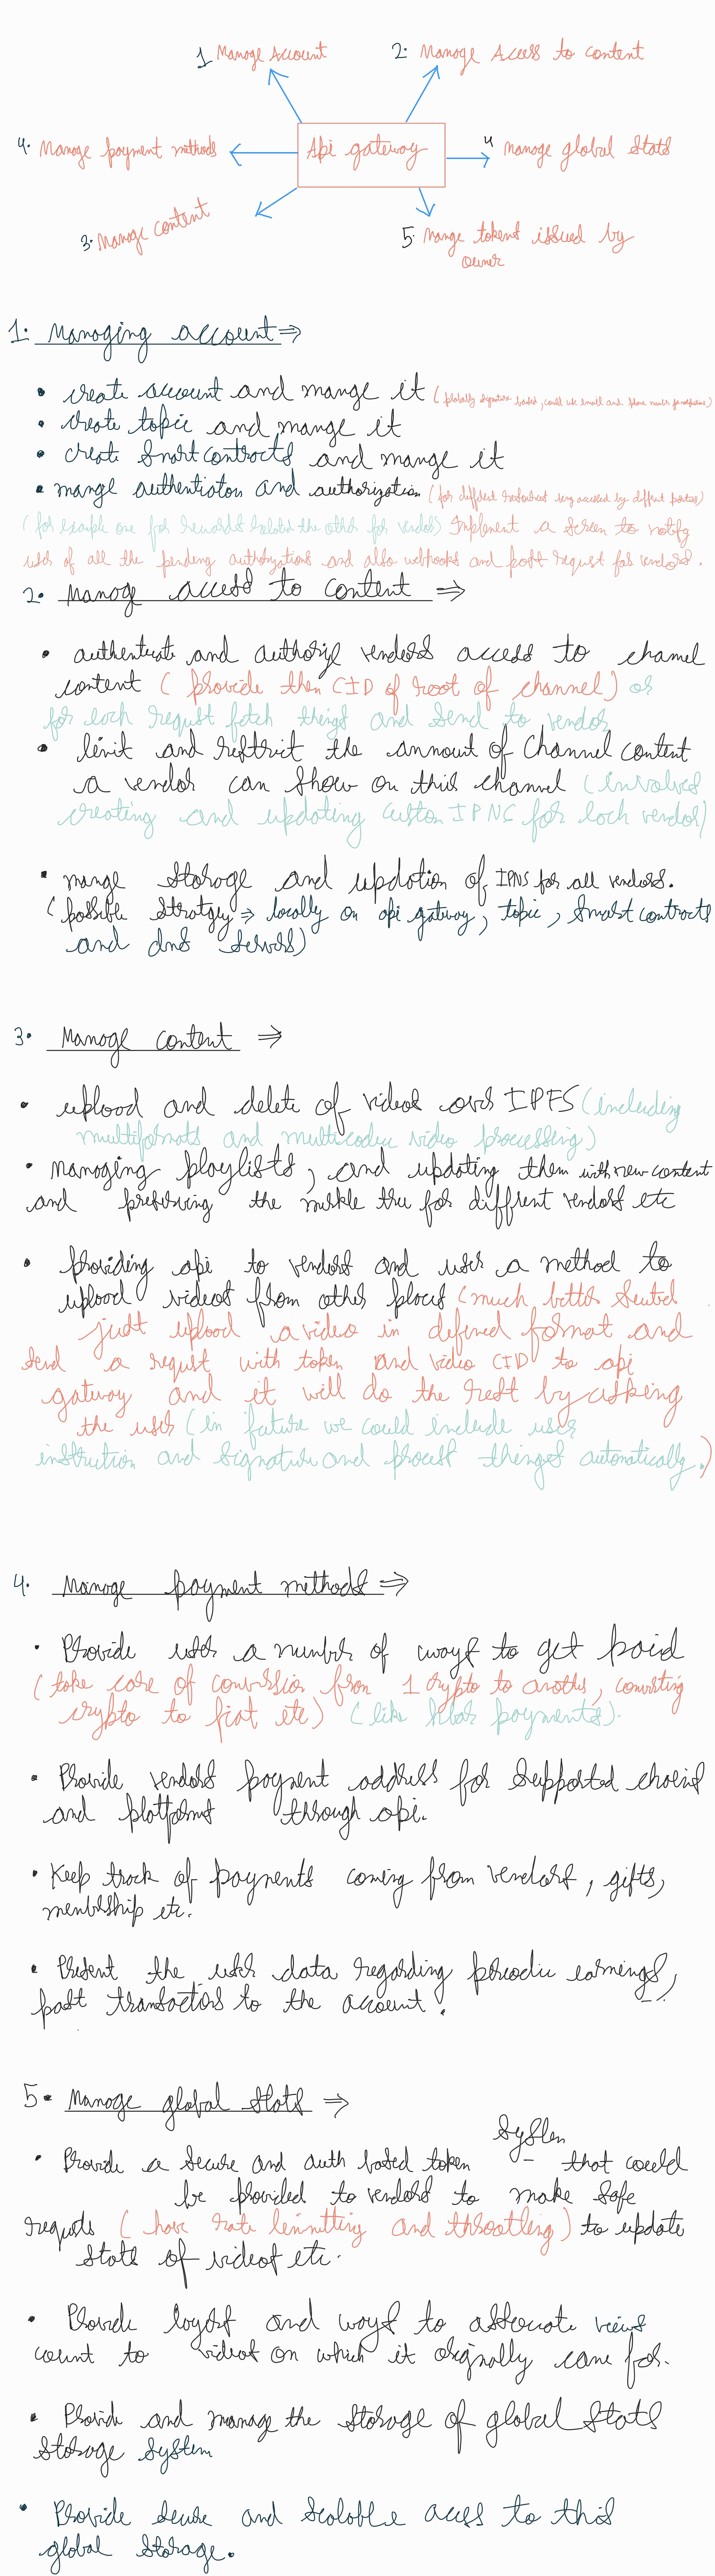 1 Manage Account
2. Manage Access to content
4. Manage payment methods
Api gateway
4 manage global Stats
3. Manage content
5. Mange tokens issued by
owner
1. Managing account ⇒
• create account and mange it (probably signature based, could use email and phone number for notifications)
• create topic and mange it
• create Smart contracts and mange it
• mange authentiaton and authorization (for different being accessed by diffrent parties)
(for example one for rewards related the other for vendor) Implement a screen to notify
user of all the pending authorizations and also webhooks and post request for vendors.
2. Manage access to content ⇒
• authenticate and authorize vendors access to channel
content (provide then CID of root of channel) or
for each request fetch things and send to vendor
• limit and restrict the amount of Channel content
a vendor can show on this channel (involves
creating and updating custom IPNS for each vendor)
• mange storage and updation of IPNS for all vendors.
(possible strategy ⇒ locally on api gateway, topic, smart contracts
and dns servers)
3. Manage content ⇒
• upload and delete of videos over IPFS (including
multiformats and multicodec video processing)
• managing playlists, and updating them with new content
and preserving the merkle tree for diffrent vendors etc
• providing api to vendors and user a method to
upload videos from other places (much better suited
just upload a video in defined format and
send a request with token and video CID to api
gateway and it will do the rest by asking
the user (in future we could include user
instruction and signature and process things automatically.)
4. Manage payment methods ⇒
• Provide user a number of ways to get paid
(take care of conversion from 1 crypto to another, converting
crypto to fiat etc) (like hbar payments).
• Provide vendors payment address for supported chains
and platforms through api.
• Keep track of payments coming from vendors, gifts,
membership etc.
• Present the user data regarding periodic earnings,
past transactions to the account.
5. Manage global Stats ⇒
• Provide a secure and auth based token system that could
be provided to vendors to make safe
requests (have rate limitting and throttling) to update
stats of videos etc.
• Provide layers and ways to associate views
count to videos on which it originally came for.
• Provide and manage the storage of global stats
storage system
• Provide secure and scalable access to this
global storage.